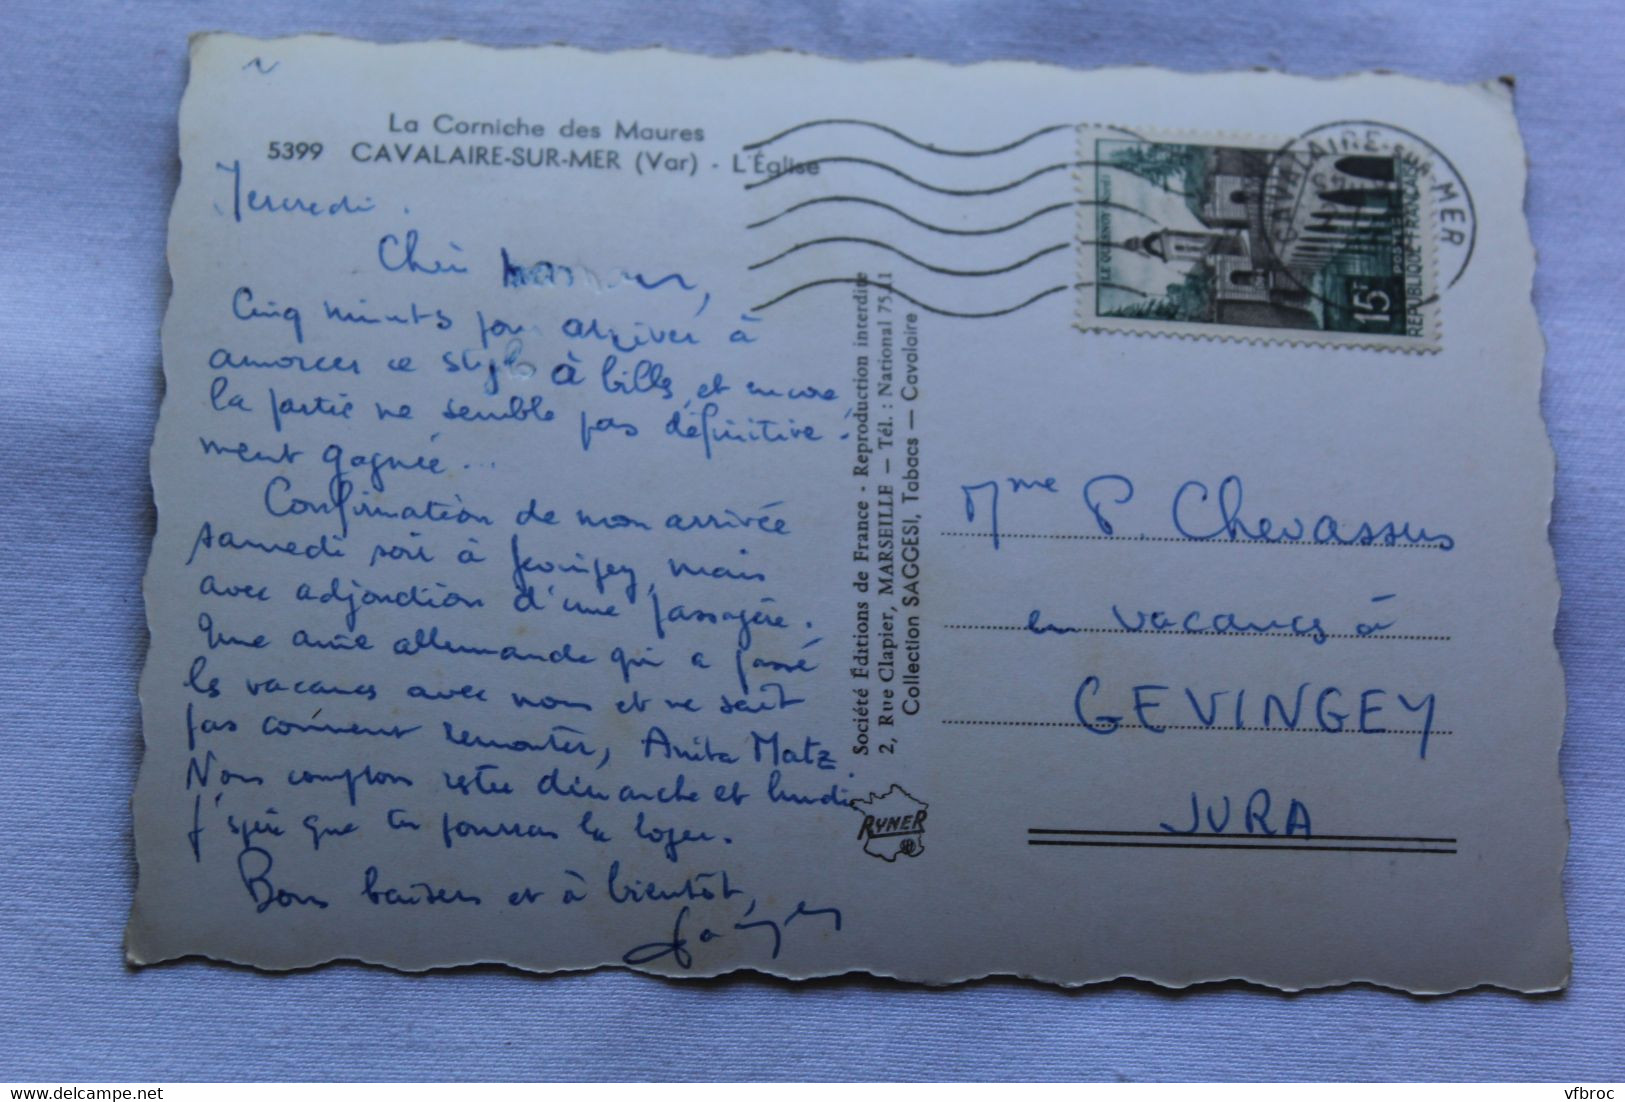 La Corniche des Maures
5399 CAVALAIRE-SUR-MER (Var) - L'Église
Mercredi.
Chère maman,
Cinq minuts pour arriver à
amorcer ce stylo à bille, et encore
la partie ne semble pas définitive-
ment gagnée...
Confirmation de mon arrivée
samedi soir à Gevingey, mais
avec adjonction d'une passagère.
Une amie allemande qui a passé
les vacances avec nous et ne sait
pas comment remonter, Anita Matz.
Nous comptons rester dimanche et lundi
J'espère que tu pourras la loger.
Bons baisers et à bientôt,
Société Éditions de France - Reproduction interdite
2, Rue Clapier, MARSEILLE — Tél. : National 75.11
Collection SAGGESI, Tabacs — Cavalaire
RYNER
CAVALAIRE-sur-MER
LE QUESNOY (NORD)
15F
POSTES
REPUBLIQUE FRANÇAISE
Mme P. Chevassus
en vacances à
GEVINGEY
JURA
vfbroc